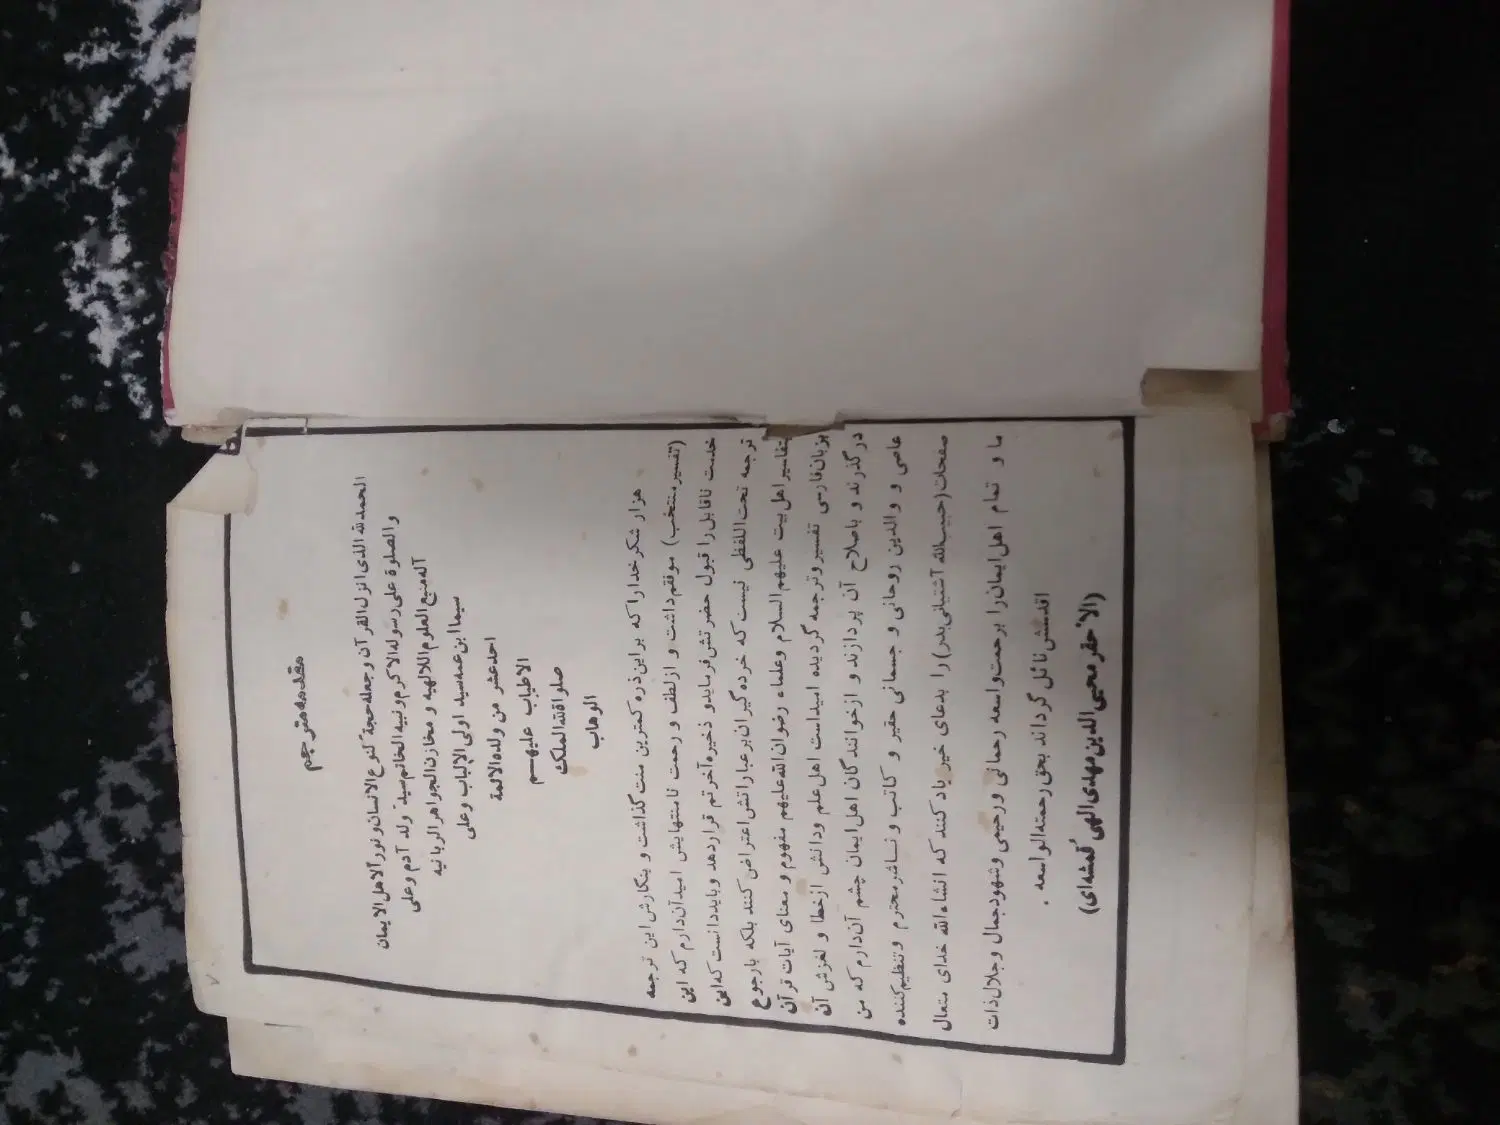 مقدمه مترجم
الحمدلله الذی انزل القرآن وجعله حجة لنوع الانسان و نورآ لاهل الایمان
والصلوة علی رسوله الاکرم ونبیه الخاتم سید ولد آدم وعلی
آله منبع العلوم اللالهیه و مخازن الجواهر الربانیه
سیما ابن عمه سید اولی الالباب وعلی
احد عشر من ولده الائمة
الاطیاب علیهم
صلواة الله الملک
الوهاب
هزار شکر خدا را که بر این ذره کمترین منت گذاشت و بنگارش این ترجمه
(تفسیر منتخب) موفقم داشت و از لطف و رحمت نامنتهایش امید آن دارم که این
خدمت ناقابل را قبول حضرتش فرماید و ذخیره آخرتم قرار دهد و باید دانست که این
ترجمه تحت اللفظی نیست که خرده گیران بر عباراتش اعتراض کنند بلکه بارجوع
بتفاسیر اهل بیت علیهم السلام وعلماء رضوان الله علیهم مفهوم و معنای آیات قرآن
بزبان فارسی تفسیر و ترجمه گردیده امید است اهل علم ودانش از خطا و لغزش آن
در گذرند و باصلاح آن پردازند و از خوانندگان اهل ایمان چشم آن دارم که من
عاصی و والدین روحانی و جسمانی حقیر و کاتب و ناشر محترم وتنظیم کننده
صفحات (حبیب الله آشتیانی پدر) را بدعای خیر یاد کنند که انشاءالله خدای متعال
ما و تمام اهل ایمان را برحمت واسعه رحمانی ورحیمی وشهود جمال وجلال ذات
اقدسش نائل گرداند بحق رحمته الواسعه .
(الاحقر محیی الدین مهدی الهی قمشه ای)